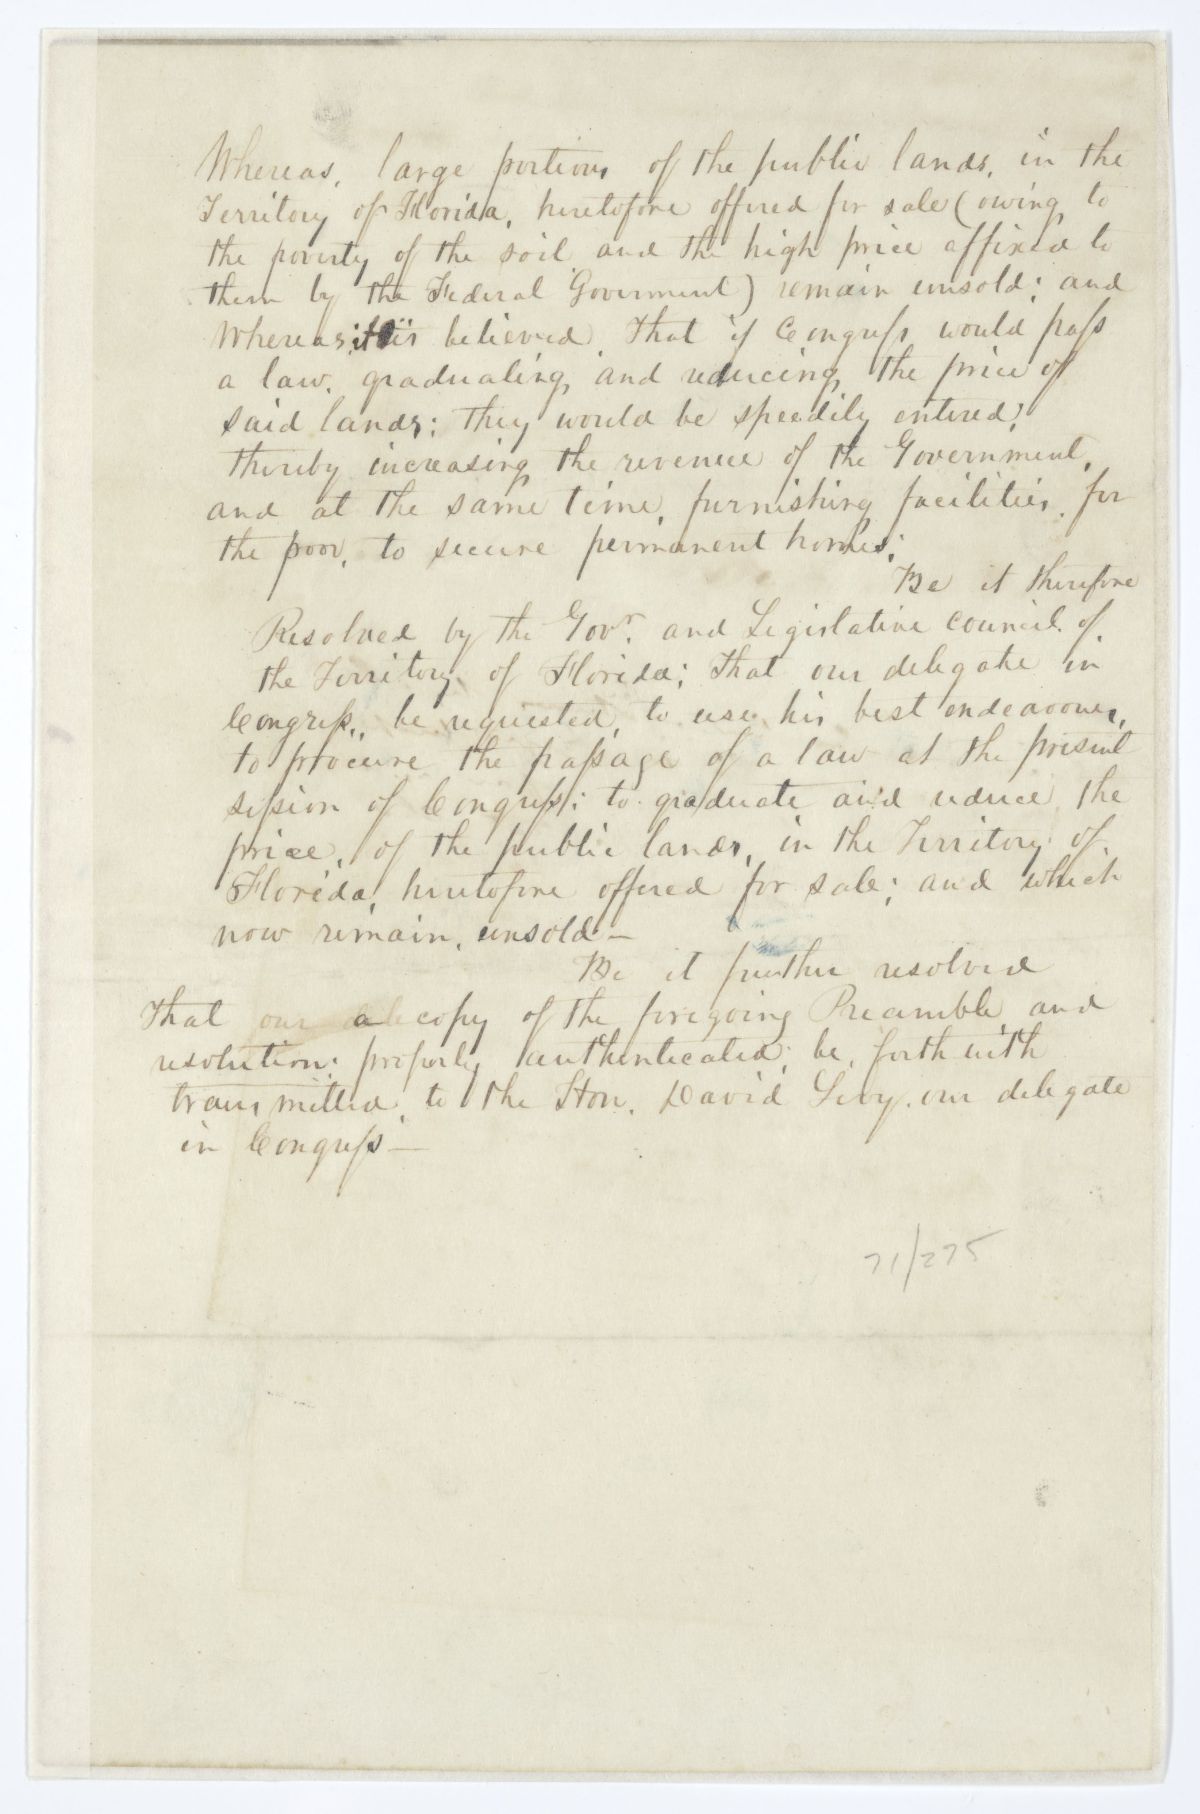 Whereas, large portions of the public lands, in the
Territory of Florida, heretofore offered for sale (owing to
the poverty of the soil and the high price affixed to
them by the Federal Goverment) remain unsold; and
Whereas it is believed, that if Congress would pass
a law, graduating and reducing the price of
said lands; they would be speedily entered;
thereby increasing the revenue of the Government,
and at the same time, furnishing facilities, for
the poor, to secure permanent homes;
Be it therefore
Resolved by the Govr. and Legislative council of
the Territory of Florida; that our delegate in
Congress, be requested, to use his best endeavours,
to procure the passage of a law at the present
session of Congress; to graduate and reduce the
price, of the public lands, in the Territory of
Florida, heretofore offered for sale; and which
now remain, unsold—
Be it further resolved
that a copy of the foregoing Preamble and
resolution; properly authenticated; be, forthwith
transmitted, to the Hon. David Levy, our delegate
in Congress—
71/275